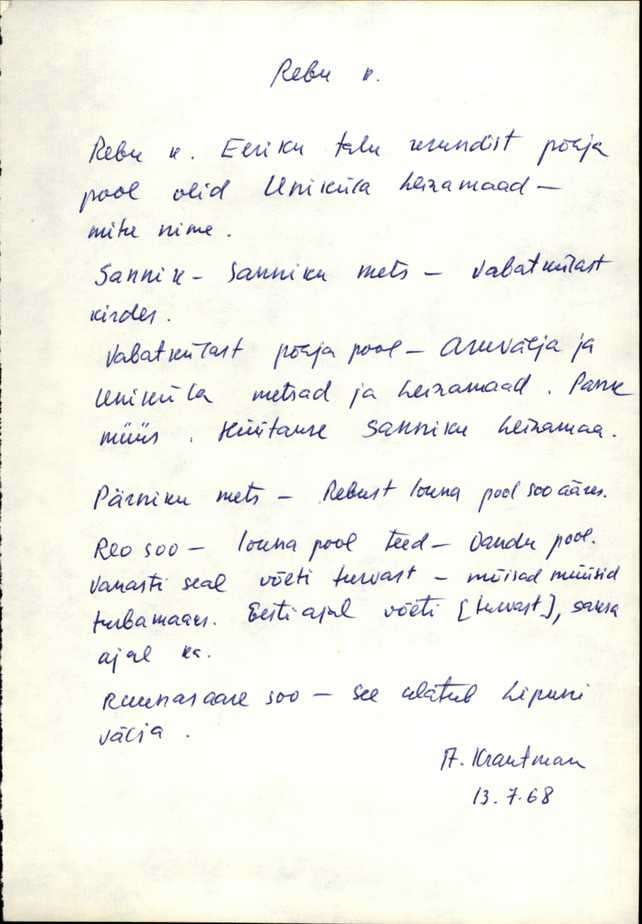 Rebu k.
Rebu k. Eeriku talu krundist põhja
pool olid Uniküla heinamaad –
mitu nime.
Sannik – Sanniku mets – Vabatkülast
kirdes.
Vabatkülast põhja pool – Aruvälja ja
Uniküla metsad ja heinamaad. Pank
müüs. Hüütakse Sanniku heinamaa.
Pärniku mets – Rebust lõuna pool soo ääres.
Reo soo – lõuna pool teed – Vandu pool.
Vanasti seal võeti turvast – mõisad müüsid
turbamaaks. Eesti ajal võeti [turvast], saksa
ajal ka.
Ruunasaare soo – see ulatub Lipuni
välja.
A. Krautman
13.7.68